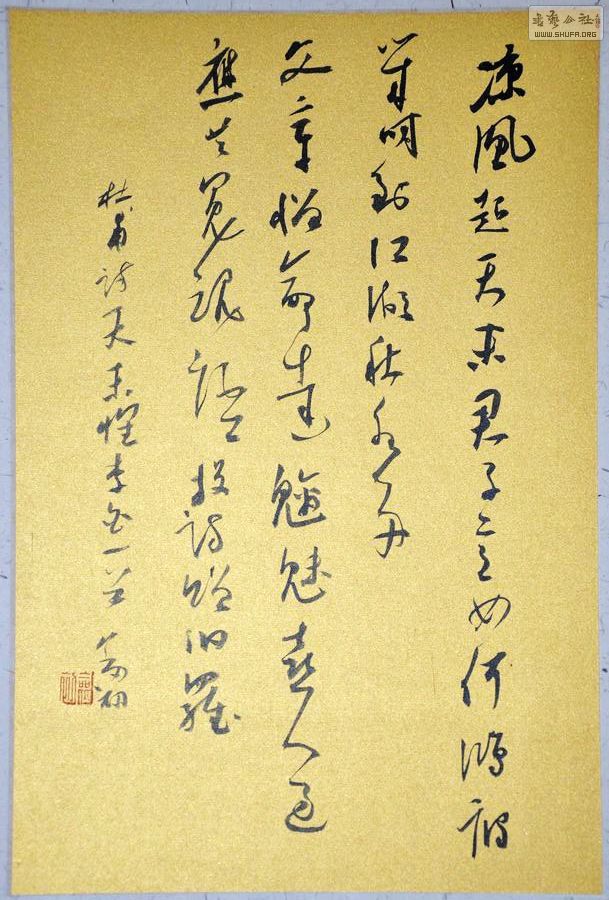 凉風起天末君子意如何鴻雁
幾時到江湖秋水多
文章憎命達魑魅喜人過
應共冤魂語投詩贈汨羅
杜甫詩天末懷李白一首
書藝公社
WWW.SHUFA.ORG